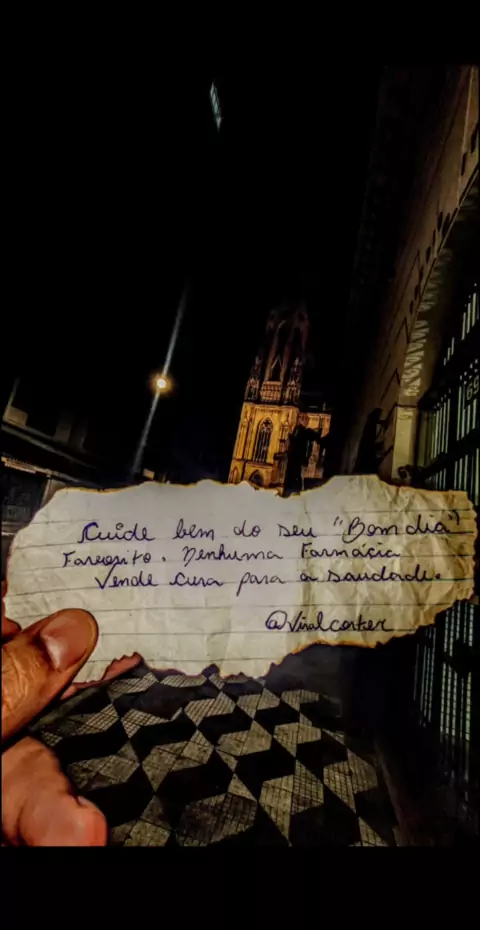 Cuide bem do seu "Bom dia"
Favorito. Nenhuma Farmácia
Vende cura para a saudade.
@Viralcorker
69